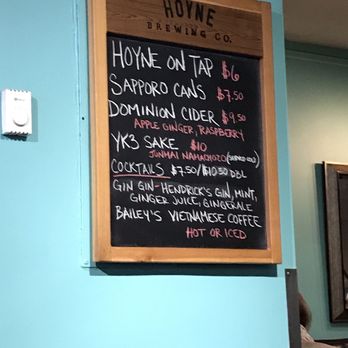 HOYNE
BREWING CO.
HOYNE ON TAP $6
SAPPORO CANS $7.50
DOMINION CIDER $9.50
APPLE GINGER, RASPBERRY
YK3 SAKE $10
JUNMAI NAMACHOZO
COCKTAILS $7.50/$10.50 DBL
GIN GIN-HENDRICK'S GIN, MINT,
GINGER JUICE, GINGERALE
BAILEY'S VIETNAMESE COFFEE
HOT OR ICED